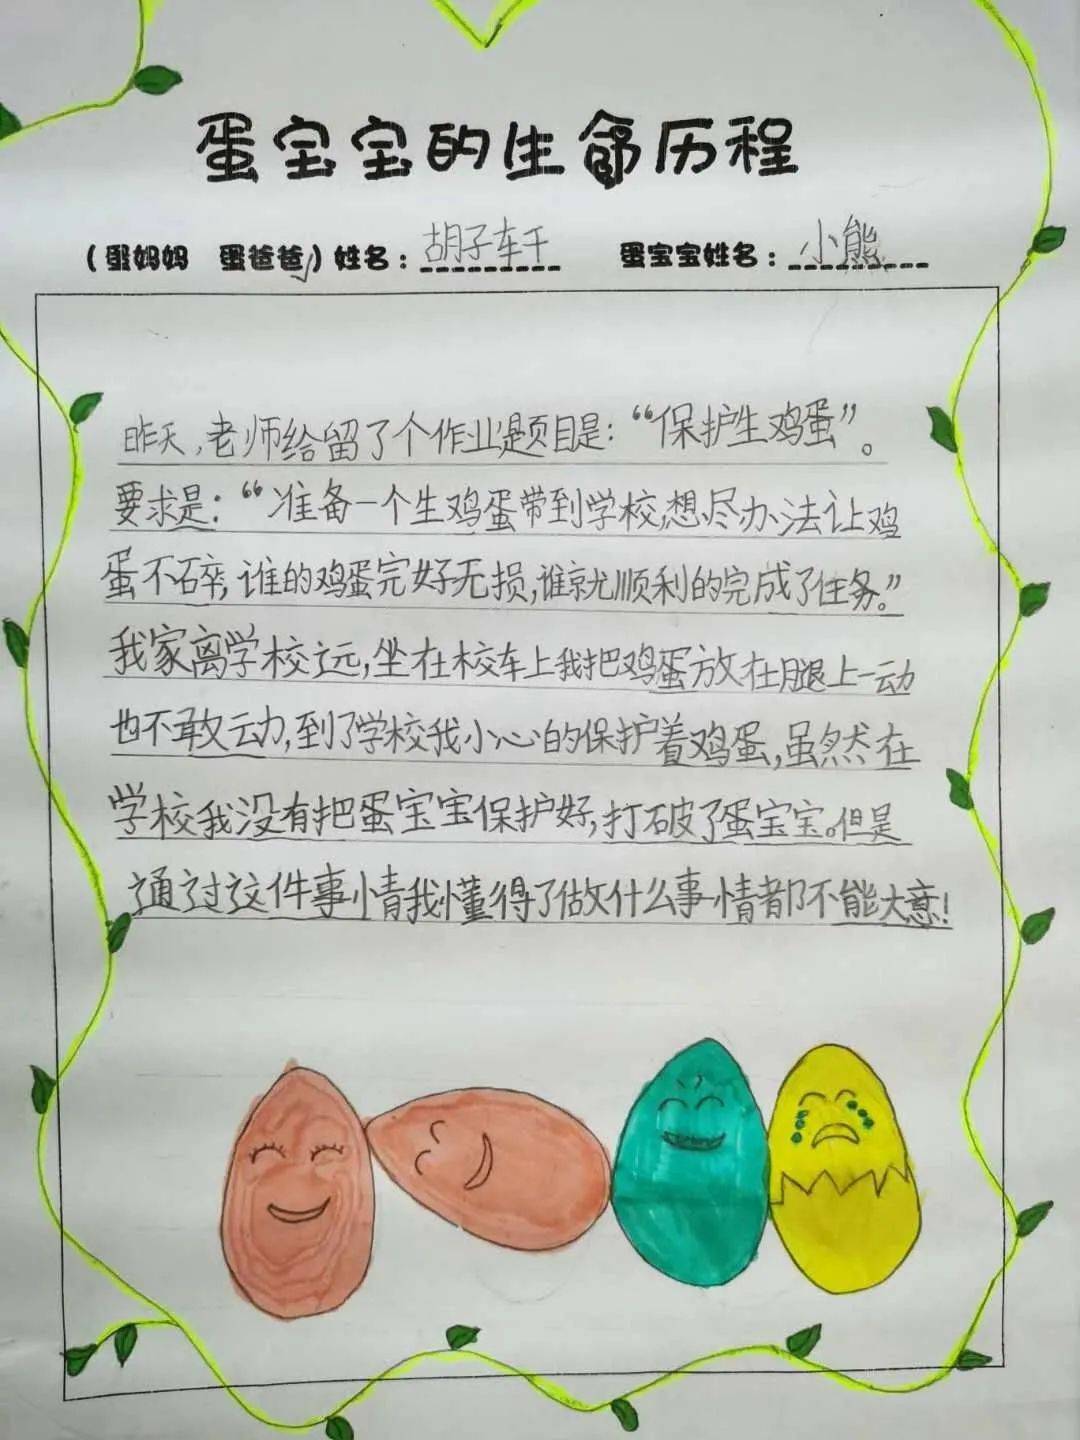 蛋宝宝的生命历程
（蛋妈妈 蛋爸爸√）姓名：胡子轩 蛋宝宝姓名：小熊
昨天，老师给留了个作业题目是：“保护生鸡蛋”。
要求是：“准备一个生鸡蛋带到学校，想尽办法让鸡
蛋不碎，谁的鸡蛋完好无损，谁就顺利的完成了任务。”
我家离学校远，坐在校车上我把鸡蛋放在腿上一动
也不敢动，到了学校我小心的保护着鸡蛋，虽然在
学校我没有把蛋宝宝保护好，打破了蛋宝宝。但是
通过这件事情我懂得了做什么事情都不能大意！